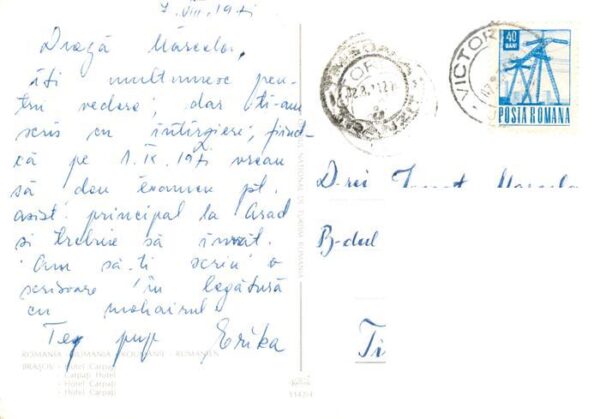 7. VIII. 197
Dragă Marcela,
îți multumesc pen-
tru vedere, dar ti-am
scris cu intirziere, fiind-
că pe 1. IX. 197 vreau
să dau examen pt.
asist. principal la Arad
si trebuie să învăt.
Am să-ti scriu o
scrisoare în legătură
cu mohairul
Te pup Erika
ROMANIA · RUMANIA · ROUMANIE · RUMÄNIEN
BRAȘOV - Hotel Carpați
- Carpați Hotel
- Hotel Carpați
- Hotel Carpați
VICTOR
40
BANI
POSTA ROMANA
D-rei Marcela
B-dul
Ti